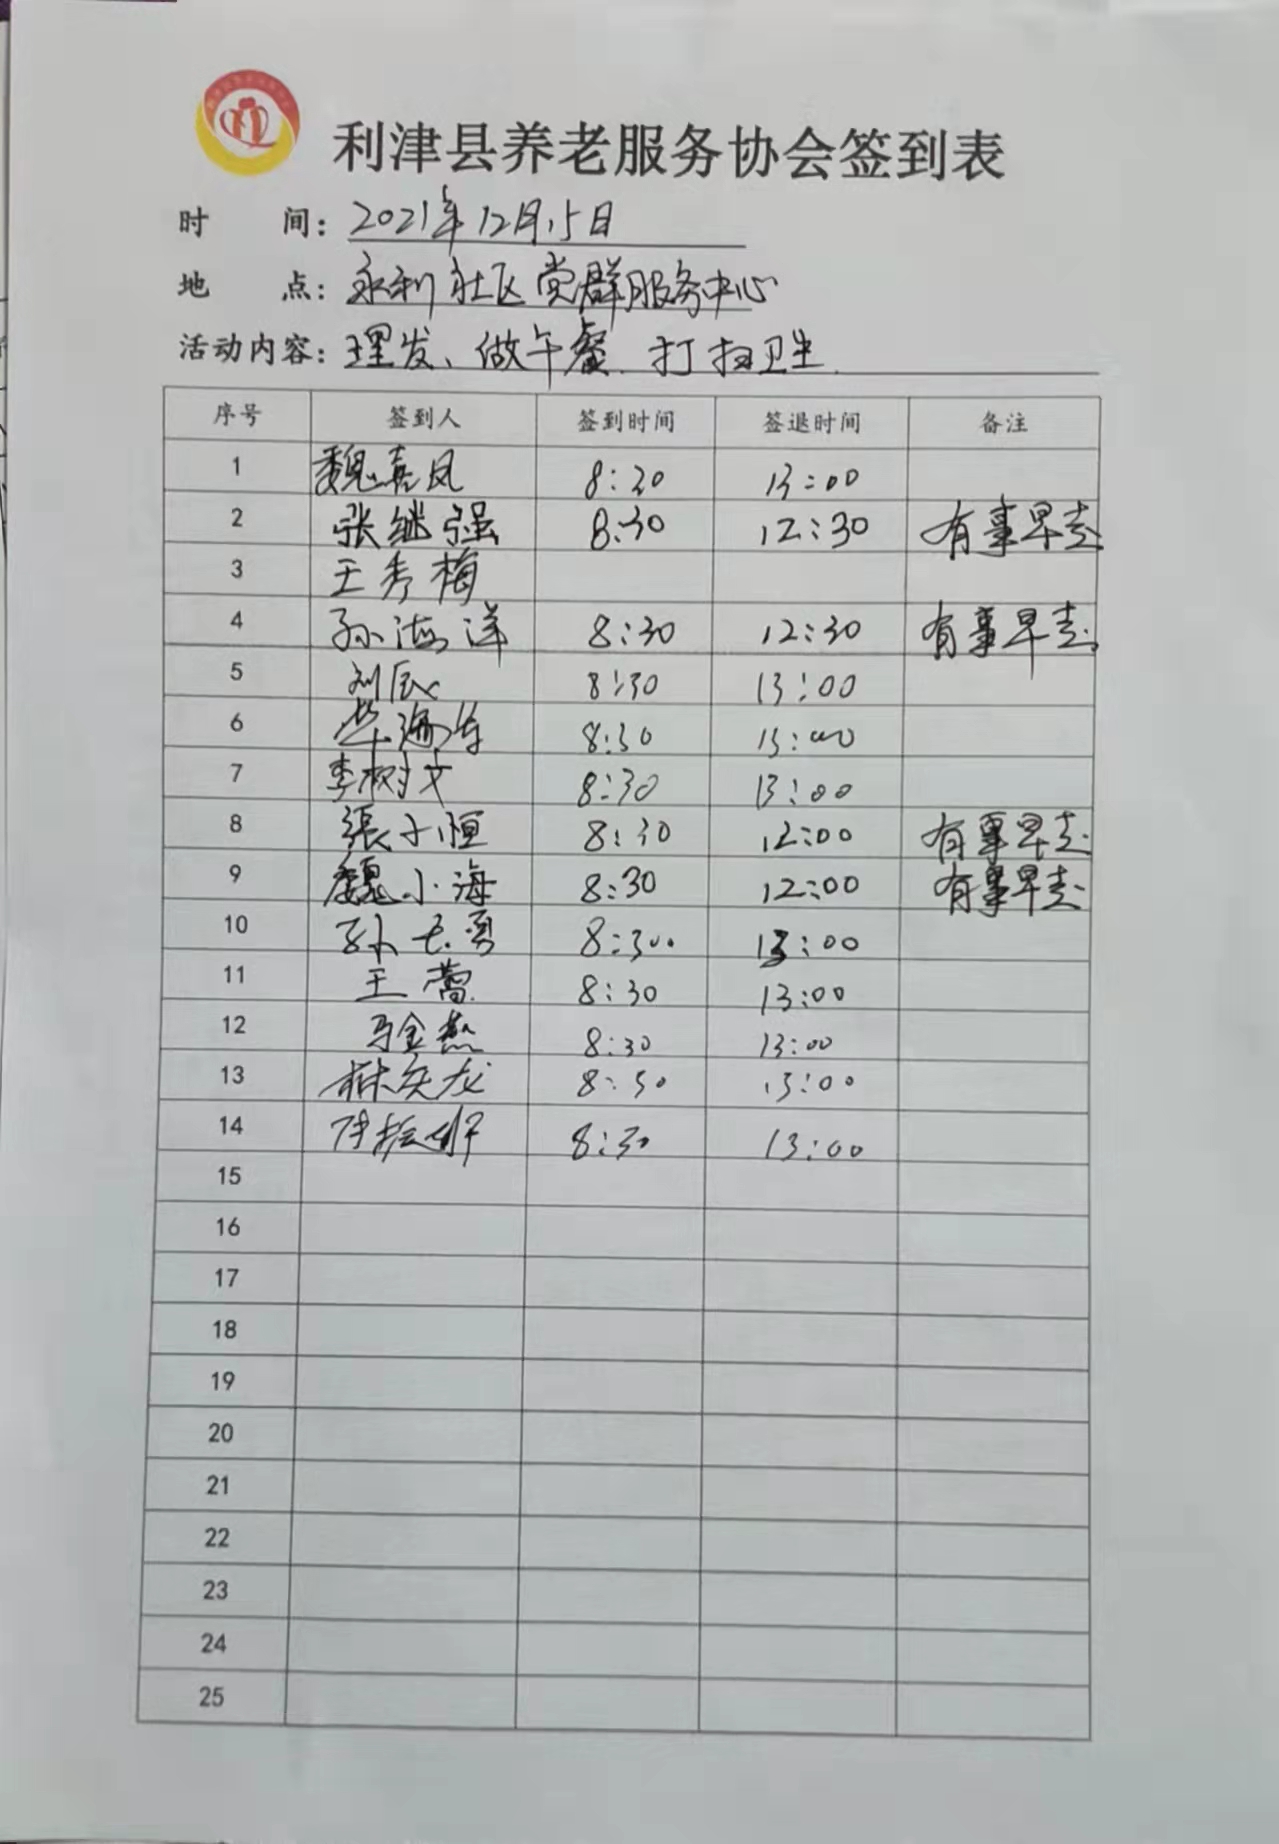 利津县养老服务协会签到表
时 间：2021年12月15日
地 点：永利社区党群服务中心
活动内容：理发、做午餐、打扫卫生
序号 签到人 签到时间 签退时间 备注
1 魏嘉凤 8:30 13:00
2 张继强 8:30 12:30 有事早走
3 王秀梅
4 孙海洋 8:30 12:30 有事早走
5 刘民 8:30 13:00
6 8:30 13:00
7 李树文 8:30 13:00
8 張子恒 8:30 12:00 有事早走
9 魏小海 8:30 12:00 有事早走
10 孙 勇 8:30 13:00
11 王蕾 8:30 13:00
12 马金燕 8:30 13:00
13 林庆龙 8:30 13:00
14 8:30 13:00
15
16
17
18
19
20
21
22
23
24
25